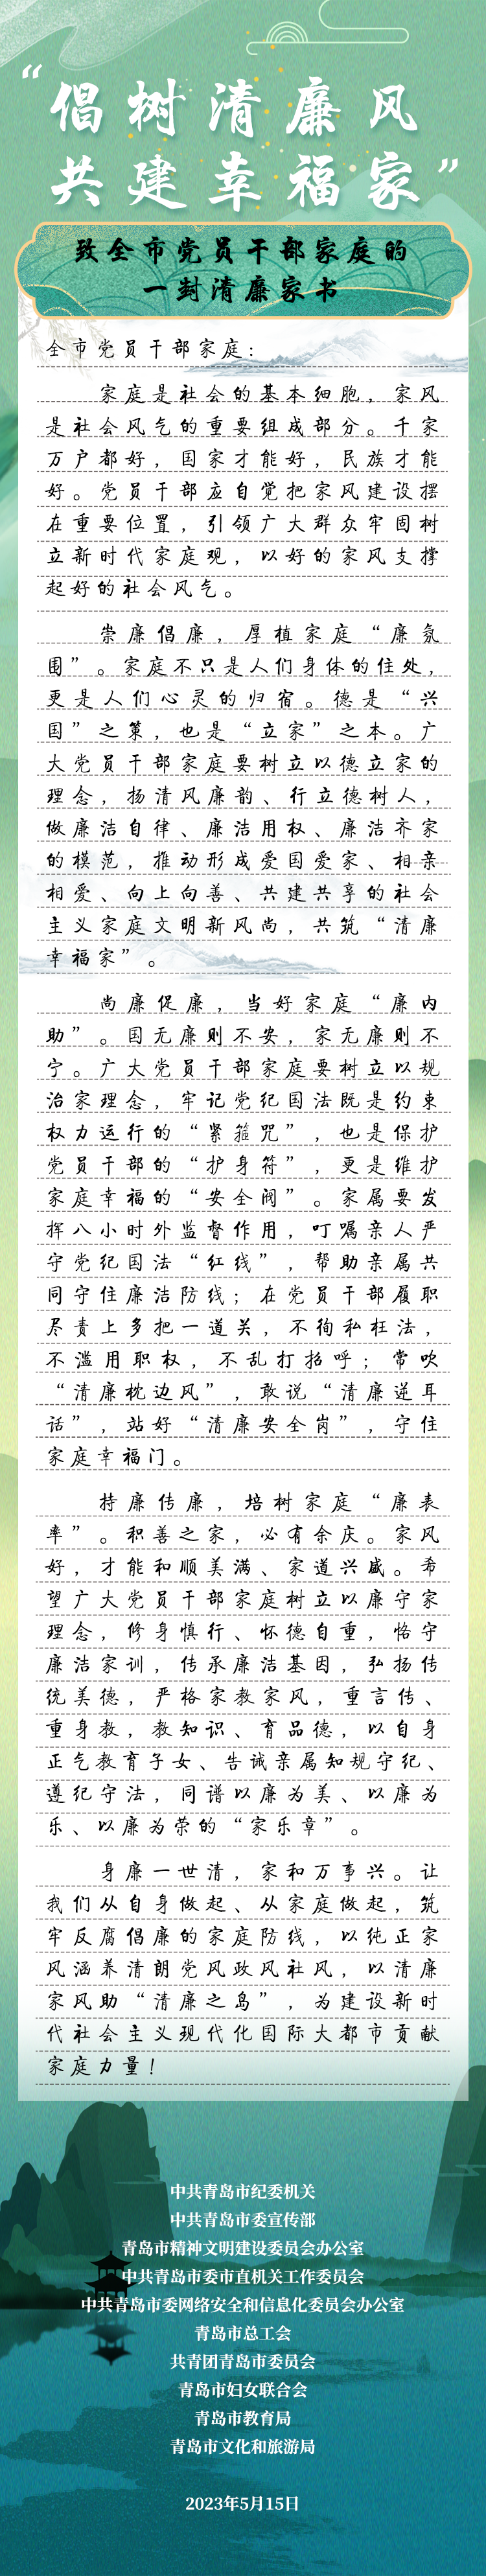 “倡树清廉风
共建幸福家”
致全市党员干部家庭的
一封清廉家书
全市党员干部家庭：
家庭是社会的基本细胞，家风
是社会风气的重要组成部分。千家
万户都好，国家才能好，民族才能
好。党员干部应自觉把家风建设摆
在重要位置，引领广大群众牢固树
立新时代家庭观，以好的家风支撑
起好的社会风气。
崇廉倡廉，厚植家庭“廉氛
围”。家庭不只是人们身体的住处，
更是人们心灵的归宿。德是“兴
国”之策，也是“立家”之本。广
大党员干部家庭要树立以德立家的
理念，扬清风廉韵、行立德树人，
做廉洁自律、廉洁用权、廉洁齐家
的模范，推动形成爱国爱家、相亲
相爱、向上向善、共建共享的社会
主义家庭文明新风尚，共筑“清廉
幸福家”。
尚廉促廉，当好家庭“廉内
助”。国无廉则不安，家无廉则不
宁。广大党员干部家庭要树立以规
治家理念，牢记党纪国法既是约束
权力运行的“紧箍咒”，也是保护
党员干部的“护身符”，更是维护
家庭幸福的“安全阀”。家属要发
挥八小时外监督作用，叮嘱亲人严
守党纪国法“红线”，帮助亲属共
同守住廉洁防线；在党员干部履职
尽责上多把一道关，不徇私枉法，
不滥用职权，不乱打招呼；常吹
“清廉枕边风”，敢说“清廉逆耳
话”，站好“清廉安全岗”，守住
家庭幸福门。
持廉传廉，培树家庭“廉表
率”。积善之家，必有余庆。家风
好，才能和顺美满、家道兴盛。希
望广大党员干部家庭树立以廉守家
理念，修身慎行、怀德自重，恪守
廉洁家训，传承廉洁基因，弘扬传
统美德，严格家教家风，重言传、
重身教，教知识、育品德，以自身
正气教育子女、告诫亲属知规守纪、
遵纪守法，同谱以廉为美、以廉为
乐、以廉为荣的“家乐章”。
身廉一世清，家和万事兴。让
我们从自身做起、从家庭做起，筑
牢反腐倡廉的家庭防线，以纯正家
风涵养清朗党风政风社风，以清廉
家风助“清廉之岛”，为建设新时
代社会主义现代化国际大都市贡献
家庭力量！
中共青岛市纪委机关
中共青岛市委宣传部
青岛市精神文明建设委员会办公室
中共青岛市委市直机关工作委员会
中共青岛市委网络安全和信息化委员会办公室
青岛市总工会
共青团青岛市委员会
青岛市妇女联合会
青岛市教育局
青岛市文化和旅游局
2023年5月15日